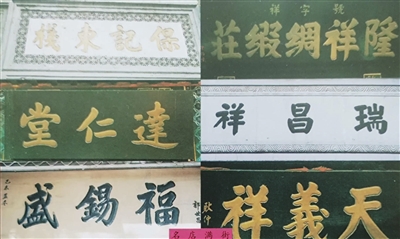 保記東棧
祥字號
隆祥綢緞莊
達仁堂
瑞昌祥
福錫盛
天義祥
名店滿街